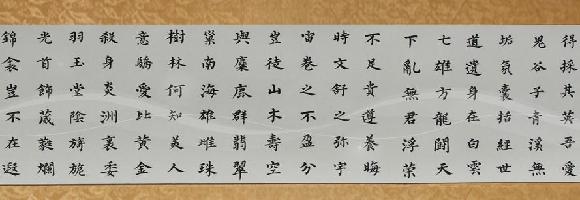 得採其英吾愛
鬼谷子青溪無
垢氛囊括經世
道遺身在白雲
七雄方龍鬪天
下亂無君浮榮
不足貴遵養晦
時文舒之弥宇
宙卷之不盈分
豈徒山木壽空
與麋鹿群翡翠
巢南海雄雌珠
樹林何知美人
意驕愛比黃金
殺身炎洲裏委
羽玉堂陰旖旎
光首飾葳蕤爛
錦衾豈不在遐